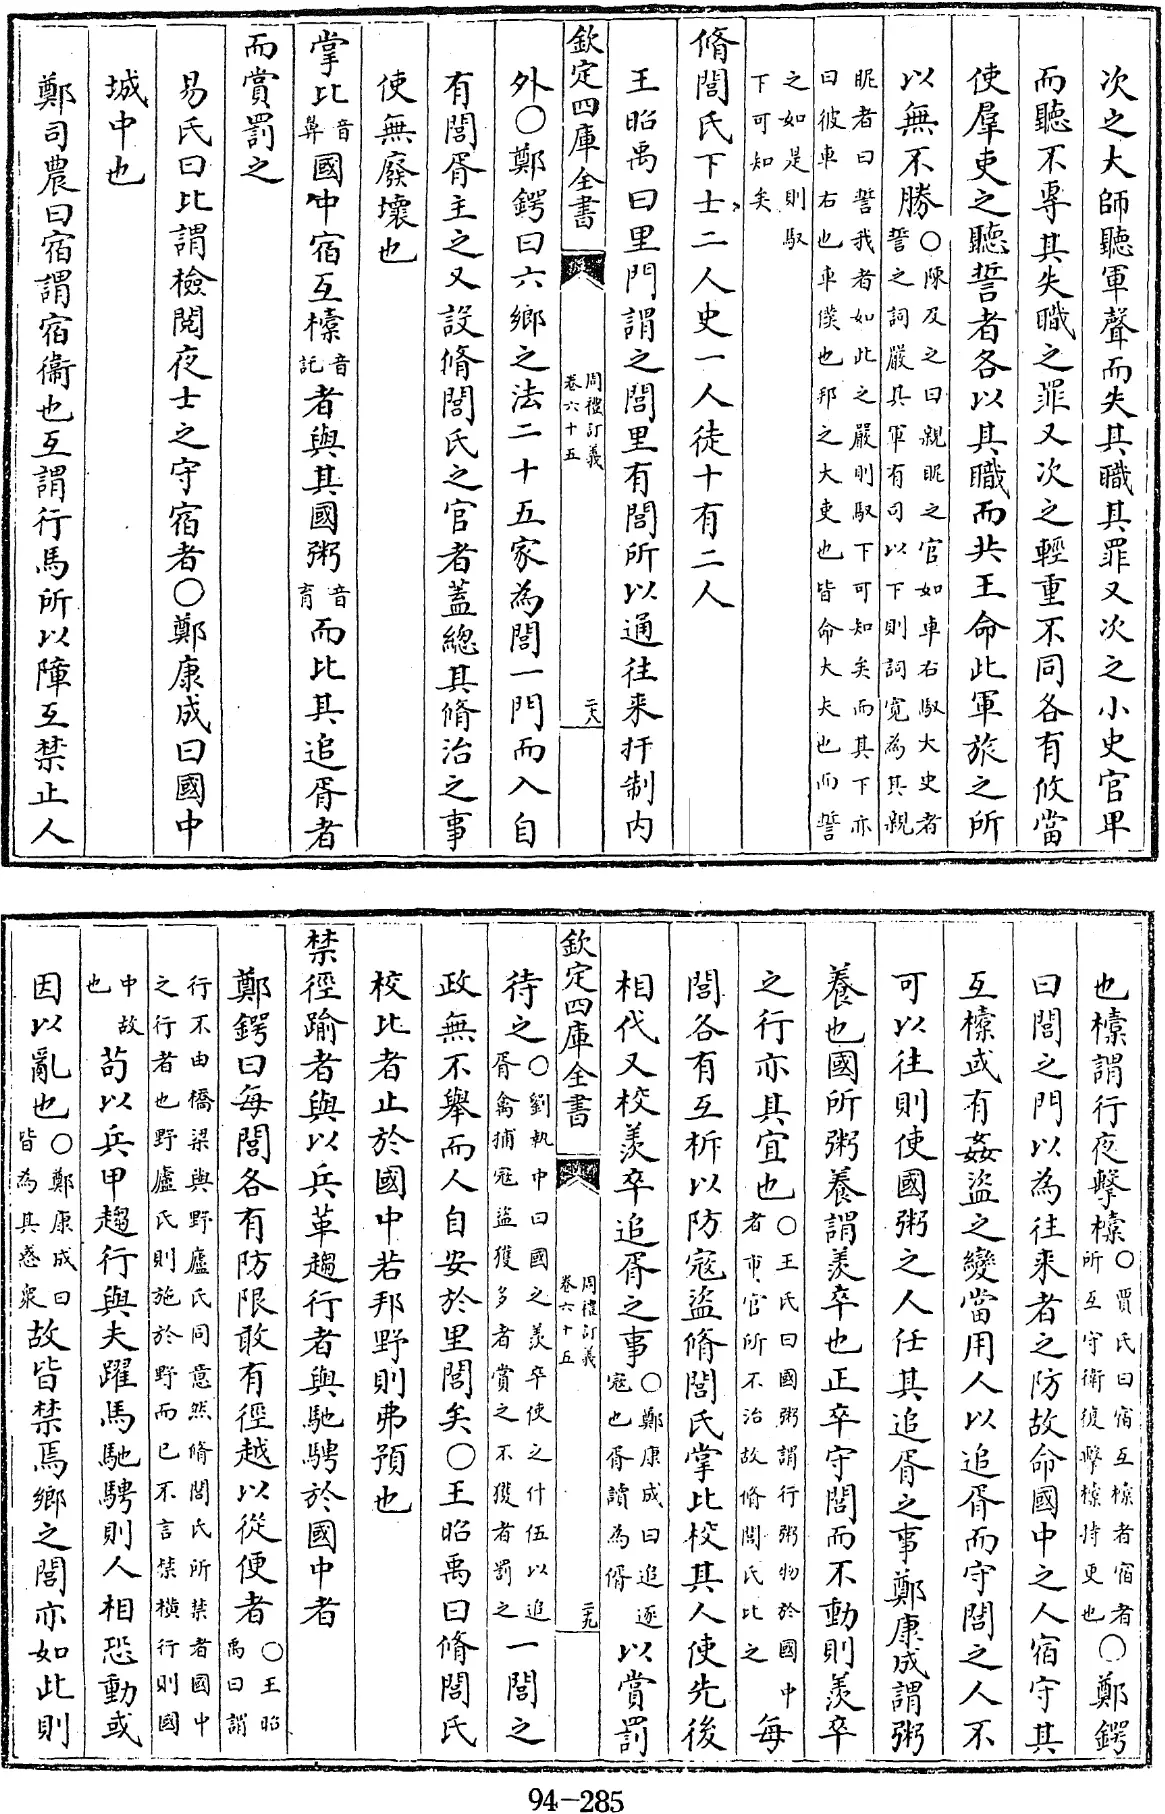 次之大師聽軍聲而失其職其罪又次之小史官卑
而聽不專其失職之罪又次之輕重不同各有攸當
使羣吏之聽誓者各以其職而共王命此軍旅之所
以無不勝○陳及之曰親昵之官如車右馭大史者誓之詞嚴其軍有司以下則詞寛為其親
昵者曰誓我者如此之嚴則馭下可知矣而其下亦曰彼車右也車僕也邦之大吏也皆命大夫也而誓
之如是則馭下可知矣
脩閭氏下士二人史一人徒十有二人
王昭禹曰里門謂之閭里有閭所以通往来扞制内
欽定四庫全書 周禮訂義卷六十五 二十八
外○鄭鍔曰六鄉之法二十五家為閭一門而入自
有閭胥主之又設脩閭氏之官者蓋總其脩治之事
使無廢壞也
掌比音鼻國中宿互㯓音託者與其國粥音育而比其追胥者
而賞罰之
易氏曰比謂檢閲夜士之守宿者○鄭康成曰國中
城中也
鄭司農曰宿謂宿衞也互謂行馬所以障互禁止人
也㯓謂行夜擊㯓○賈氏曰宿互㯓者宿者所互守衛復擊㯓持更也○鄭鍔
曰閭之門以為往来者之防故命國中之人宿守其
互㯓或有姦盜之變當用人以追胥而守閭之人不
可以往則使國粥之人任其追胥之事鄭康成謂粥
養也國所粥養謂羡卒也正卒守閭而不動則羡卒
之行亦其宜也○王氏曰國粥謂行粥物於國中者市官所不治故脩閭氏比之每
閭各有互柝以防寇盜脩閭氏掌比校其人使先後
相代又校羡卒追胥之事○鄭康成曰追逐寇也胥讀為偦以賞罰
欽定四庫全書 周禮訂義卷六十五 二十九
待之○劉執中曰國之羡卒使之什伍以追胥禽捕寇盜獲多者賞之不獲者罰之一閭之
政無不舉而人自安於里閭矣○王昭禹曰脩閭氏
校比者止於國中若邦野則弗預也
禁徑踰者與以兵革趨行者與馳騁於國中者
鄭鍔曰每閭各有防限敢有徑越以從便者○王昭禹曰謂
行不由橋梁與野廬氏同意然脩閭氏所禁者國中之行者也野廬氏則施於野而已不言禁橫行則國
中故也苟以兵甲趨行與夫躍馬馳騁則人相恐動或
因以亂也○鄭康成曰皆為其惑衆故皆禁焉鄉之閭亦如此則
94-285